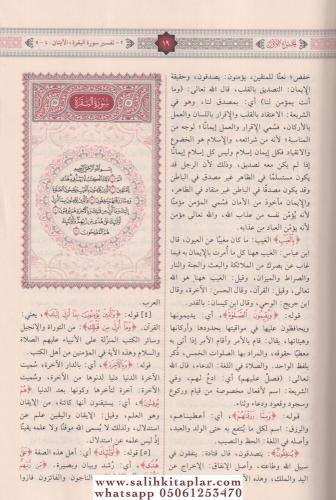 ٢- تفسير سورة البقرة، الآيتان: ٤-٥
١٩
خفض؛ نعتًا للمتقين، يؤمنون: يصدقون، وحقيقة
الإيمان: التصديق بالقلب، قال الله تعالى: (وما
أنت بمؤمن لنا) أي: بمصدق لنا، وهو في
الشريعة: الاعتقاد بالقلب والإقرار باللسان والعمل
بالأركان، فسُمي الإقرار والعمل إيمانًا؛ لوجه من
المناسبة؛ لأنه من شرائعه، والإسلام هو الخضوع
والانقياد فكل إيمان إسلام وليس كل إسلام إيمانًا
إذا لم يكن معه تصديق، وذلك لأن الرجل قد
يكون مستسلمًا في الظاهر غير مصدق في الباطن
وقد يكون مصدقًا في الباطن غير منقاد في الظاهر،
والإيمان مأخوذ من الأمان فسُمي المؤمن مؤمنًا
لأنه يؤمن نفسه من عذاب الله، والله تعالى مؤمن
لأنه يؤمن العباد من عذابه.
﴿بِالْغَيْبِ﴾ الغيب: ما كان مغيبًا عن العيون، قال
ابن عباس: الغيب ههنا كل ما أمرت بالإيمان به فيما
غاب عن بصرك من الملائكة والبعث والجنة والنار
والصراط والميزان، وقيل: الغيب ههنا هو الله
تعالى، وقيل: القرآن، وقال الحسن: الآخرة، وقال
ابن جريج: الوحي، وقال ابن كيسان: بالقدر.
قوله: ﴿وَيُقِيمُونَ الصَّلَاةَ﴾، أي: يديمونها
ويحافظون عليها في مواقيتها بحدودها وأركانها
وهيئاتها، يقال: قام بالأمر وأقام الأمر إذا أتى به
معطيًا حقوقه، والمراد بها الصلوات الخمس، ذكر
بلفظ الواحد. والصلاة في اللغة: الدعاء، قال الله
تعالى: (فصل عليهم) أي: ادع لهم، وفي
الشريعة: اسم لأفعال مخصوصة من قيام وركوع
وسجود وقعود ودعاء وثناء.
قوله: ﴿وَمِمَّا رَزَقْنَاهُمْ﴾، أي: أعطيناهم،
والرزق: اسم لكل ما ينتفع به حتى الولد والعبد،
وأصله في اللغة: الحظ والنصيب.
﴿يُنْفِقُونَ﴾: يتصدقون، قال قتادة: ينفقون في
سبيل الله وطاعته، وأصل الإنفاق: الإخراج عن
سورة البقرة
العرب.
[٤] قوله: ﴿وَالَّذِينَ يُؤْمِنُونَ بِمَا أُنْزِلَ إِلَيْكَ﴾، يعني:
القرآن. ﴿وَمَا أُنْزِلَ مِنْ قَبْلِكَ﴾: من التوراة والإنجيل
وسائر الكتب المنزلة على الأنبياء عليهم الصلاة
والسلام وهذه الآية في المؤمنين من أهل الكتب.
﴿وَبِالْآخِرَةِ﴾، أي: بالدار الآخرة، سُميت
الآخرة؛ الدنيا دنيا لدنوها من الآخرة، وسُميت
الآخرة: آخرة لتأخرها وكونها بعد الدنيا ﴿هُمْ
يُوقِنُونَ﴾، أي: يستيقنون أنها كائنة، من الإيقان
وهو العلم، وقيل: الإيقان واليقين علم عن
استدلال، ولذلك لا يُسمى الله موقنًا ولا علمه يقينًا
إذ ليس علمه عن استدلال.
[٥] قوله: ﴿أُولَئِكَ﴾، أي: أهل هذه الصفة ﴿عَلَى
www.salihkitaplar.com
whatsapp 05061253470